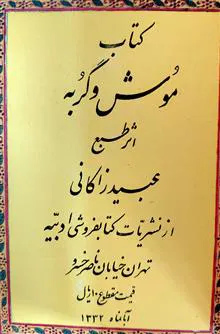 کتاب
موش و گربه
اثر طبع
عبید زاکانی
از نشریات کتابفروشی ادبیه
تهران خیابان ناصر خسرو
قیمت مقطوع ۱۰ ریال
آبانماه ۱۳۳۲